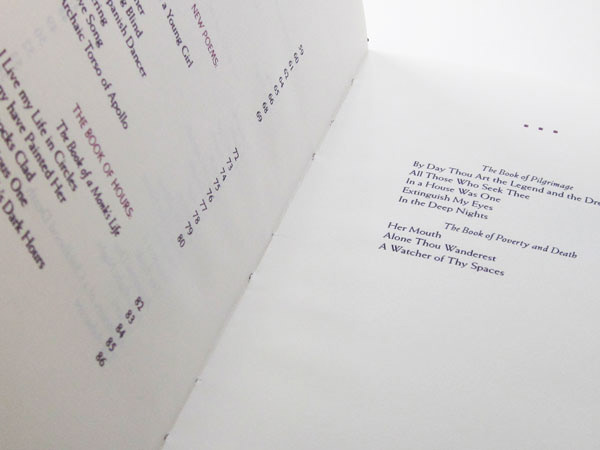 NEW POEMS:
a Young Girl
g Blind
ve Song
panish Dancer
rchaic Torso of Apollo
THE BOOK OF HOURS
The Book of a Monk's Life
I Live my Life in Circles
ny have Painted Her
ocks Clad
ous One
s Dark Hours
69
72
73
74
75
76
77
78
79
80
82
83
84
85
86
• • •
The Book of Pilgrimage
By Day Thou Art the Legend and the Dre
All Those Who Seek Thee
In a House Was One
Extinguish My Eyes
In the Deep Nights
The Book of Poverty and Death
Her Mouth
Alone Thou Wanderest
A Watcher of Thy Spaces